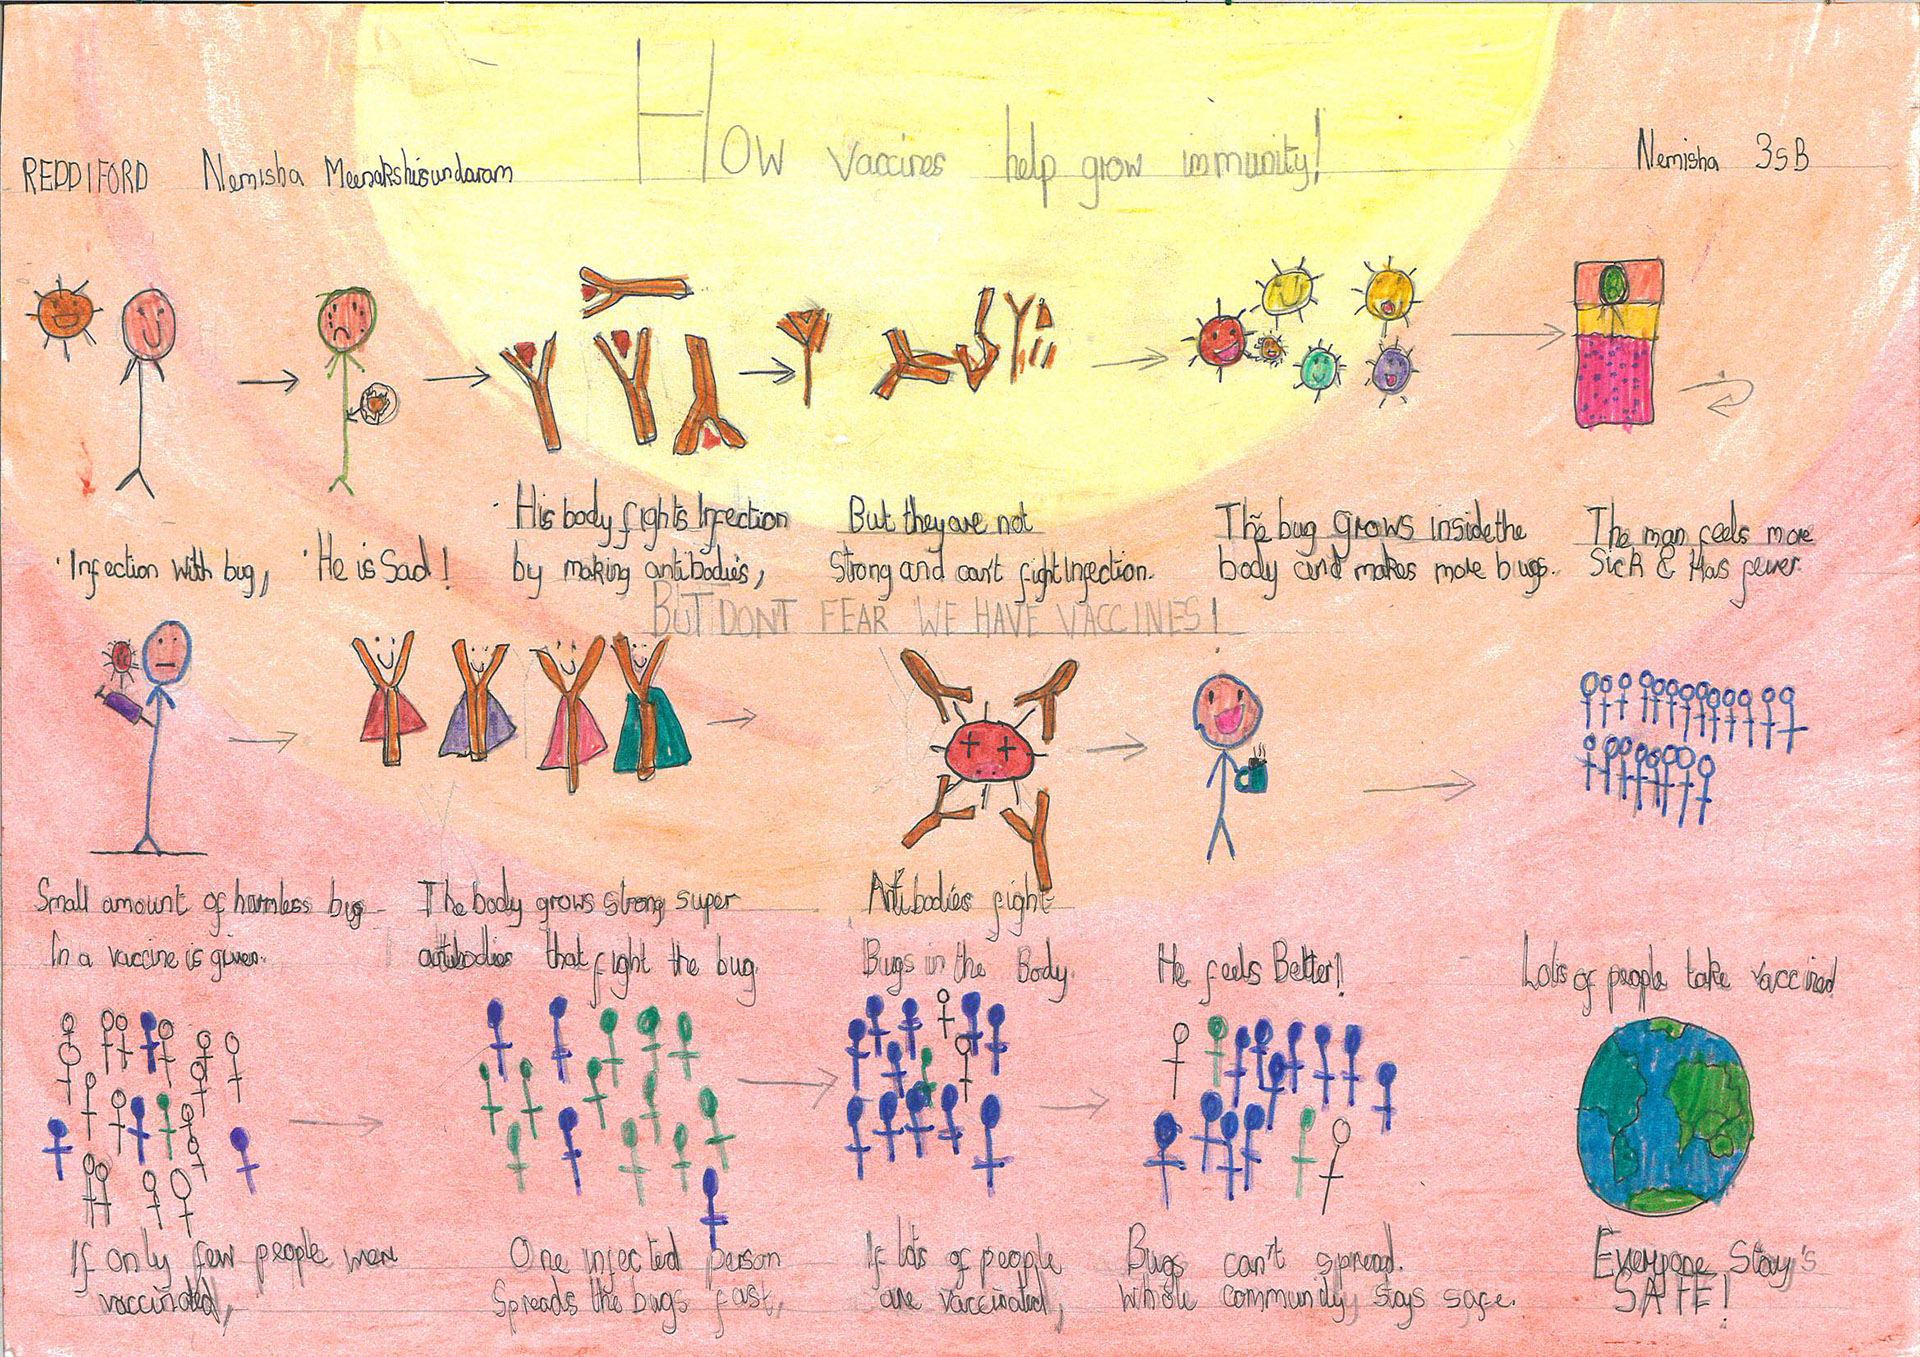 REDDIFORD Nemisha Meenakshisundaram
How vaccines help grow immunity!
Nemisha 3SB
Infection with bug,
He is Sad!
His body fights Infection
by making antibodies,
But they are not
Strong and can't fight Infection.
The bug grows inside the
body and makes more bugs.
The man feels more
Sick & Has fever
BUT DONT FEAR WE HAVE VACCINES!
Small amount of harmless bug
In a vaccine is given.
The body grows strong super
antibodies that fight the bug.
Antibodies fight
Bugs in the Body.
He feels Better!
Lots of people take vaccined
If only few people were
vaccinated,
One infected person
Spreads the bugs fast,
If lots of people
are vaccinated,
Bugs can't spread.
Whole community stays safe.
Everyone Stay's
SAFE!